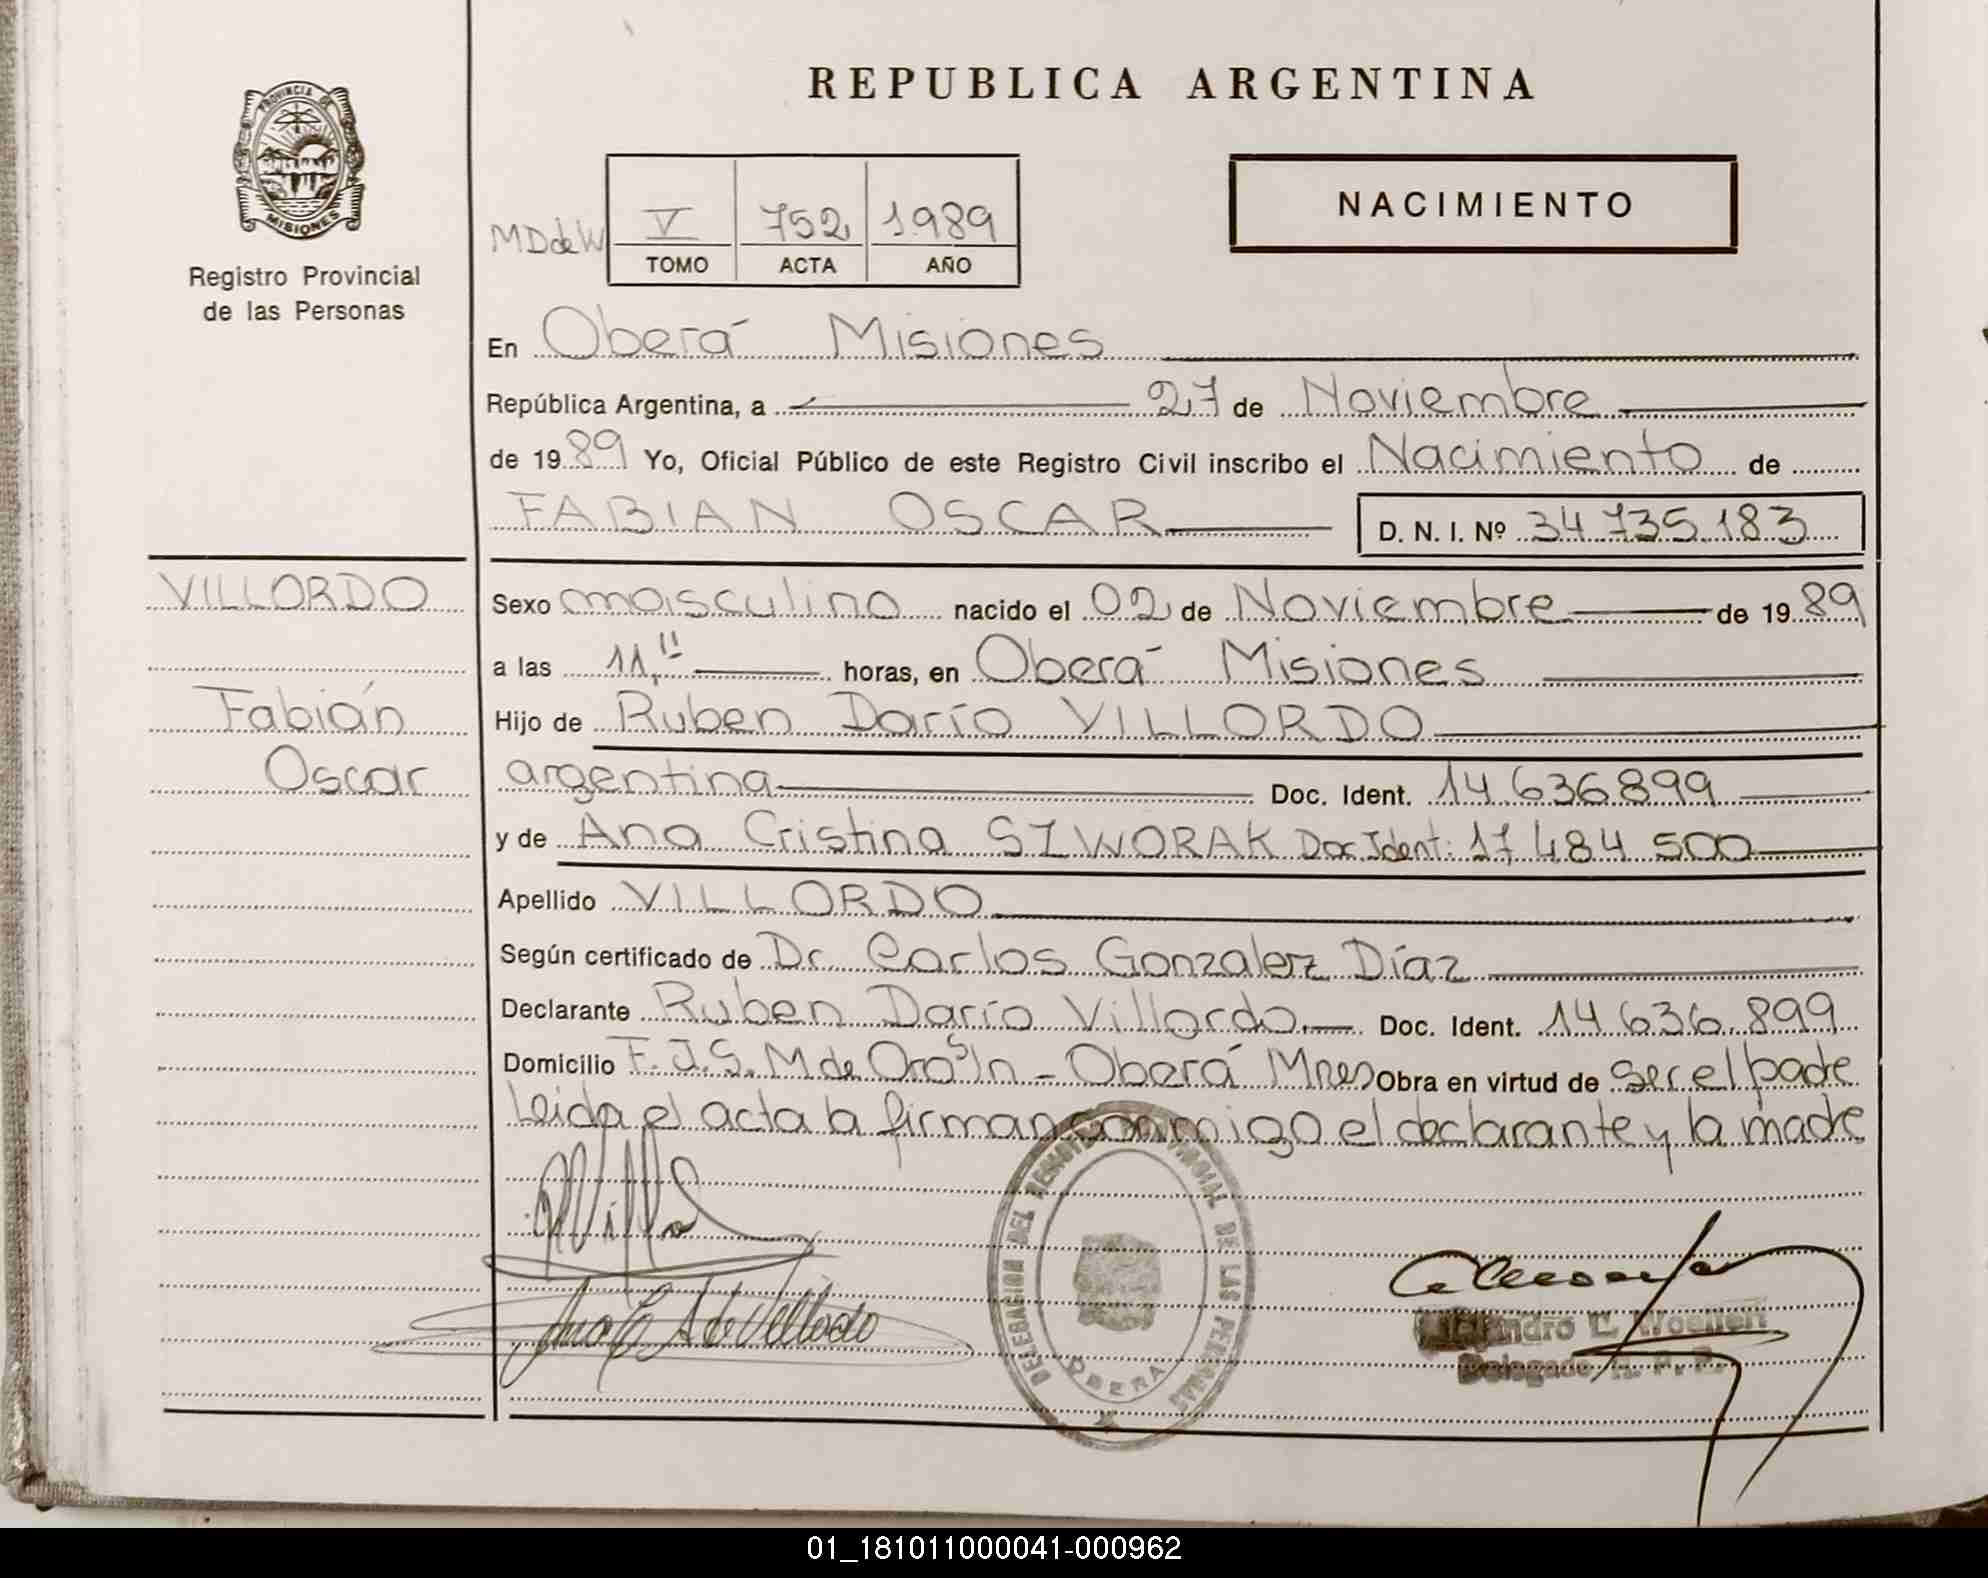 REPUBLICA ARGENTINA
PROVINCIA DE
MISIONES
Registro Provincial
de las Personas
NACIMIENTO
MDdeW V 752 1989
TOMO ACTA AÑO
En Oberá Misiones
República Argentina, a 27 de Noviembre
de 1989 Yo, Oficial Público de este Registro Civil inscribo el Nacimiento de
FABIAN OSCAR D. N. I. Nº 34 735 183
VILLORDO
Fabián
Oscar
Sexo masculino nacido el 02 de Noviembre de 1989
a las 11,11 horas, en Oberá Misiones
Hijo de Ruben Darío VILLORDO
argentina Doc. Ident. 14 636 899
y de Ana Cristina SZWORAK Doc. Ident: 17 484 500
Apellido VILLORDO
Según certificado de Dr. Carlos Gonzalez Díaz
Declarante Ruben Darío Villordo Doc. Ident. 14 636 899
Domicilio F. J. S. M de Oro S/n - Oberá Mnes Obra en virtud de ser el padre
Leida el acta la firman conmigo el declarante y la madre
DELEGACION DEL REGISTRO PROVINCIAL DE LAS PERSONAS
OBERA
Delegado R. P. P.
01_181011000041-000962